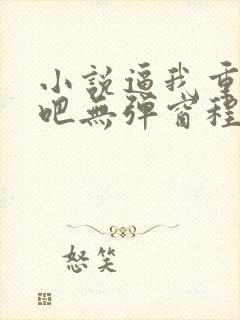 小說逼我重
吧無彈窗程
怒笑